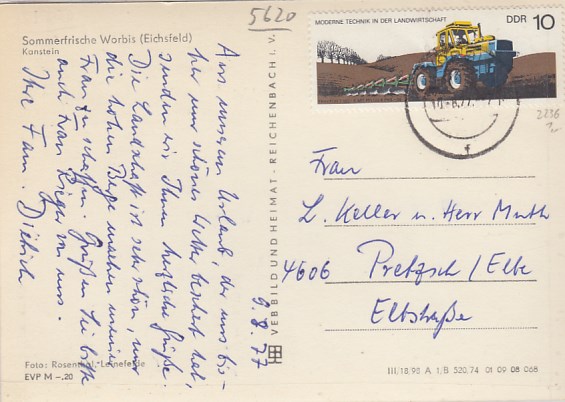 5620
Sommerfrische Worbis (Eichsfeld)
Kanstein
Aus unserem Urlaub, der uns bis-
her nur schönes Wetter beschert hat,
senden wir Ihnen herzliche Grüße.
Die Landschaft ist sehr schön, nur
die hohen Berge machen meiner
Frau zu schaffen. Grüßen Sie bitte
auch Frau Krieger von uns.
Ihre Fam. Dietrich
9.8.77
Foto: Rosenthal, Leinefelde
EVP M –,20
VEB BILD UND HEIMAT · REICHENBACH I. V.
MODERNE TECHNIK IN DER LANDWIRTSCHAFT
DDR 10
2236
Frau
L. Keller u. Herr Muth
4606 Pretzsch/Elbe
Elbstraße
III/18/90 A 1/B 520/74 01 09 08 068